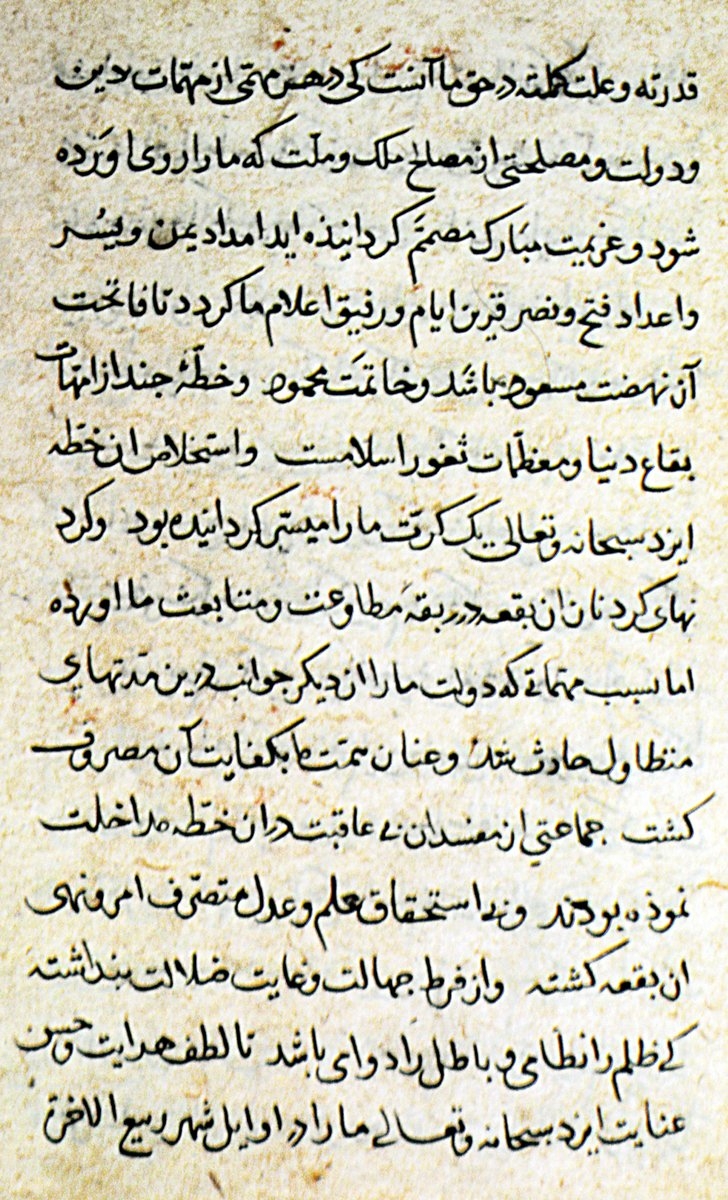 قدرته وعلت كلمته در حق ما آنست کی در هر مهمی از مهمات دین
و دولت و مصلحتی از مصالح ملک و ملّت که ما را روی اوَرده
شود و عزیمت مبَارک مصممَّ کردانیذه اید امداد یمن و یسُر
و اعداد فتح و نصر قرین ایام و رفیق اعلام ما کردد تا فاتحت
آن نهضت مسعود باشَد و خاتمتَ محمود و خطّهٔ جند از امهات
بقاع دنیا و معظّمات ثغور اسلامست و استخلاص ان خطّه
ایزد سبحانه وتعالی یک کرّت ما را میسّر کردانیده بود و کرد
نهای کردنان ان بقعه در ربقهَ مطاوعت و متابعت ما اورده
اما بسبب مهمّاتی که دولت ما را از دیکر جوانب درین مدّتهای
متطاول حادث شذ و عنان همّت ما بکفایت آن مصروف
کشت جماعتی از مفسدان بی عاقبت در ان خطّه مداخلت
نموذه بودند و بی استحقاق علم و عدل متصرّف امر و نهی
ان بقعه کشته و از فرط جهالت و غایت ضلالت بنداشته
کے ظلم را نظامی و باطل را دوای باشد تا لطف هدایت و حسن
عنایت ایزد سبحانه وتعالے ما را در اوایل شهر ربیع الاخرة